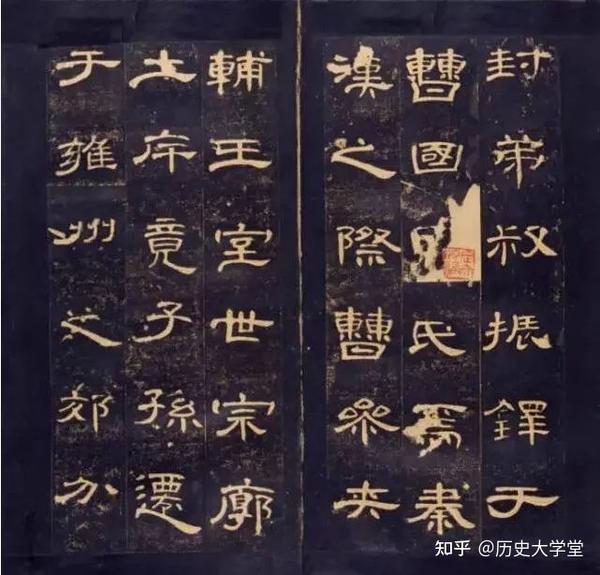 封弟叔振鐸于
曹國因氏焉秦
漢之際曹參夾
輔王室世宗廓
土斥竟子孫遷
于雍州之郊分
知乎 @历史大学堂